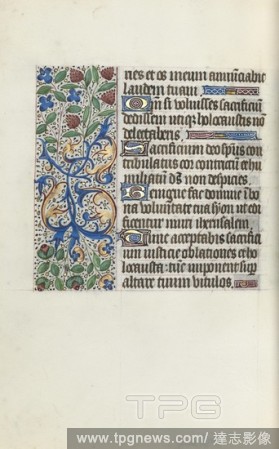 nes et os meum annunciabit
laudem tuam
Qm si voluisses sacrificiu
dedissem utiqz holocaustis no
delectaberis
Sacrificium deo spus con
tribulatus cor contritu et hu
miliatu ds non despicies
Benigne fac domine i bo
na voluntate tua syon ut edi
ficentur muri iherusalem
Tunc acceptabis sacrifici
um iusticie oblationes et ho
locausta tuc imponent sup
altare tuum vitulos
TPG
www.tpgnews.com/ 達志影像